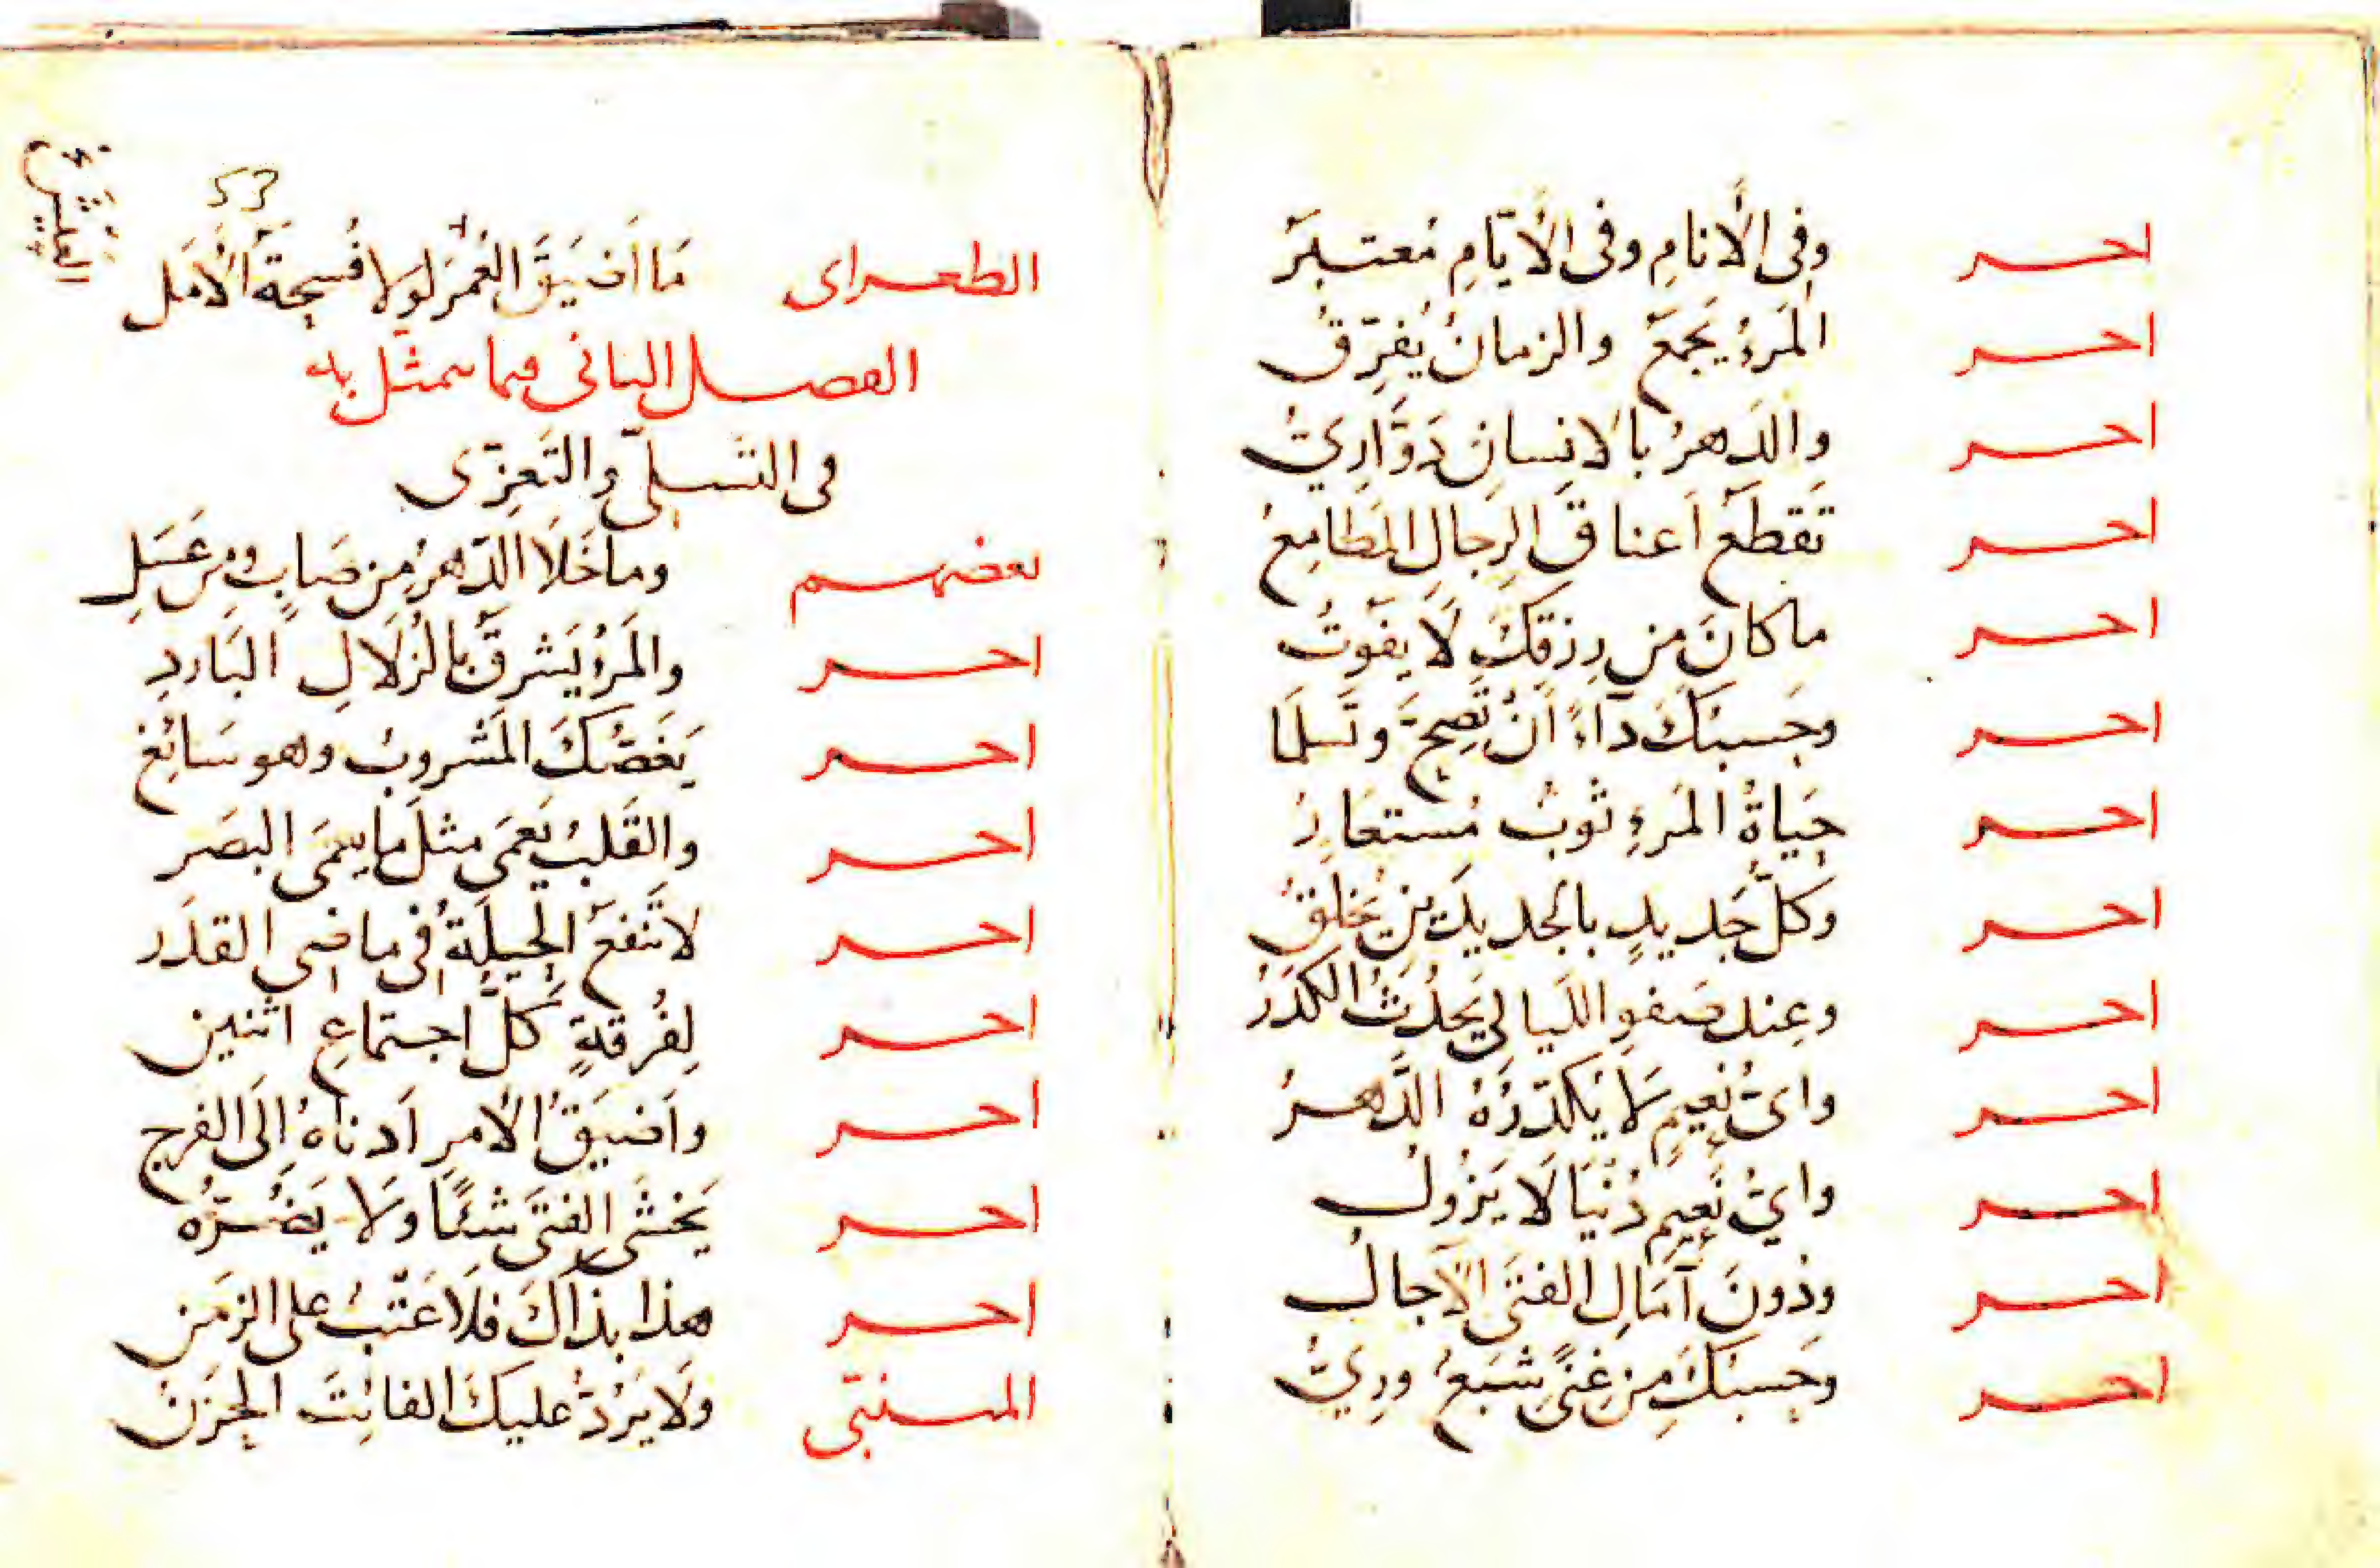 احر وفى الأنامِ وفى الأيّامِ مُعتبَر
احر المَرءُ يَجمَعُ والزمانُ يُفرِّقُ
احر والدَّهرُ بالانسانِ دَوَّارِيُّ
احر تَقطَعُ أعناقَ الرِجالِ المَطامِعُ
احر ما كانَ من رِزقِكَ لَا يَفوتُ
احر وحَسبُكَ دآءً أَنْ تَصِحَّ وتَسلَمَا
احر حَياةُ المَرءِ ثوبُ مُستعَارُ
احر وكلُّ جَديدٍ بالجديدَينِ يَخلَقُ
احر وعِند صَفوِ اللَيالى يَحدُثُ الكَدَرُ
احر واىُّ نَعيمٍ لَا يُكَدِّرُهُ الدَّهرُ
احر واىُّ نَعِيمِ دُنْيَا لَا يَزُولُ
احر ودُونَ آمَالِ الفتَى الآجالُ
احر وحَسبُكَ مِن غِنًى شَبَعُ ورِىُّ
العشرين
53
الطعراى مَا أضيَقَ العُمرَ لولا فُسحَةُ الأمَل
الفصل الثانى فيما يتمثّل به
فى التسلّى والتَعزّى
بعضهم وما خَلَا الدّهرُ مِن صَابٍ ومِن عَسَلِ
احر والمَرءُ يَشرقُ بالزُلَالِ البَاردِ
احر يَغَصّكَ المَشروبُ وهو سَائغ
احر والقَلبُ يَعمَى مثلَ ما يعمَى البصَر
احر لا تَنفعُ الحِيلَةُ فى ماضِى القدَر
احر لِفُرقةٍ كلُّ اجتماعِ اثنين
احر واَضيَقُ الأمرِ اَدناهُ إلَى الفرج
احر يَخشَى الفتَى شئًا ولَا يَضُرّهُ
احر هذا بذاكَ فلَا عَتْبُ على الزمَن
المتنبّى ولَا يَرُدُّ عليكَ الفائتَ الحَزَنُ